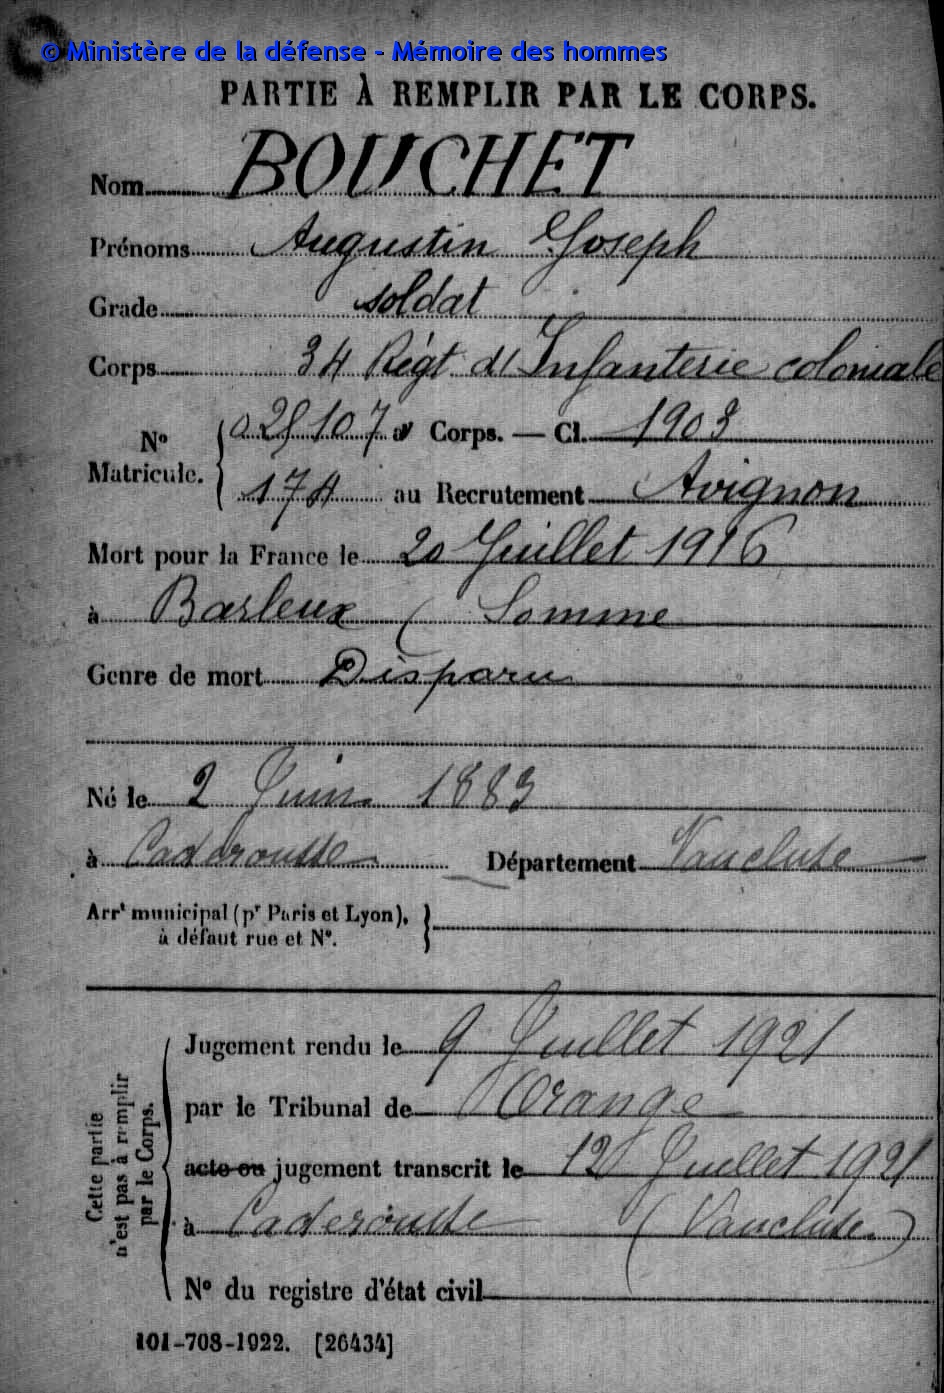 © Ministère de la défense - Mémoire des hommes
PARTIE À REMPLIR PAR LE CORPS.
Nom BOUCHET
Prénoms Augustin Joseph
Grade soldat
Corps 34 Régt d'Infanterie coloniale
N° Matricule. { 025107 au Corps. — Cl. 1903
174 au Recrutement Avignon
Mort pour la France le 20 Juillet 1916
à Barleux (Somme
Genre de mort Disparu
Né le 2 Juin 1883
à Caderousse Département Vaucluse
Arrt municipal (pr Paris et Lyon), }
à défaut rue et N°.
Cette partie
n'est pas à remplir
par le Corps.
Jugement rendu le 9 Juillet 1921
par le Tribunal de Orange
acte ou jugement transcrit le 12 Juillet 1921
à Caderousse (Vaucluse)
N° du registre d'état civil
101-708-1922. [26434]